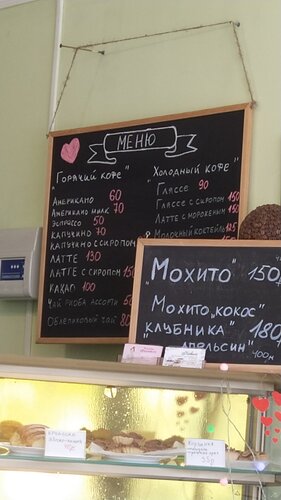 МЕНЮ
"Горячий кофе"
Американо 60
Американо милк 70
Эспрессо 50
Капучино 70
Капучино с сиропом
Латте 130
Латте с сиропом 150
Какао 100
Чай ассорти 50
Облепиховый чай 80
"Холодный кофе"
Глясе 90
Глясе с сиропом 150
Латте с мороженым 150
Молочный коктейль 125
"Мохито" 150
Мохито "кокос"
"клубника" 180
апельсин"
400мл